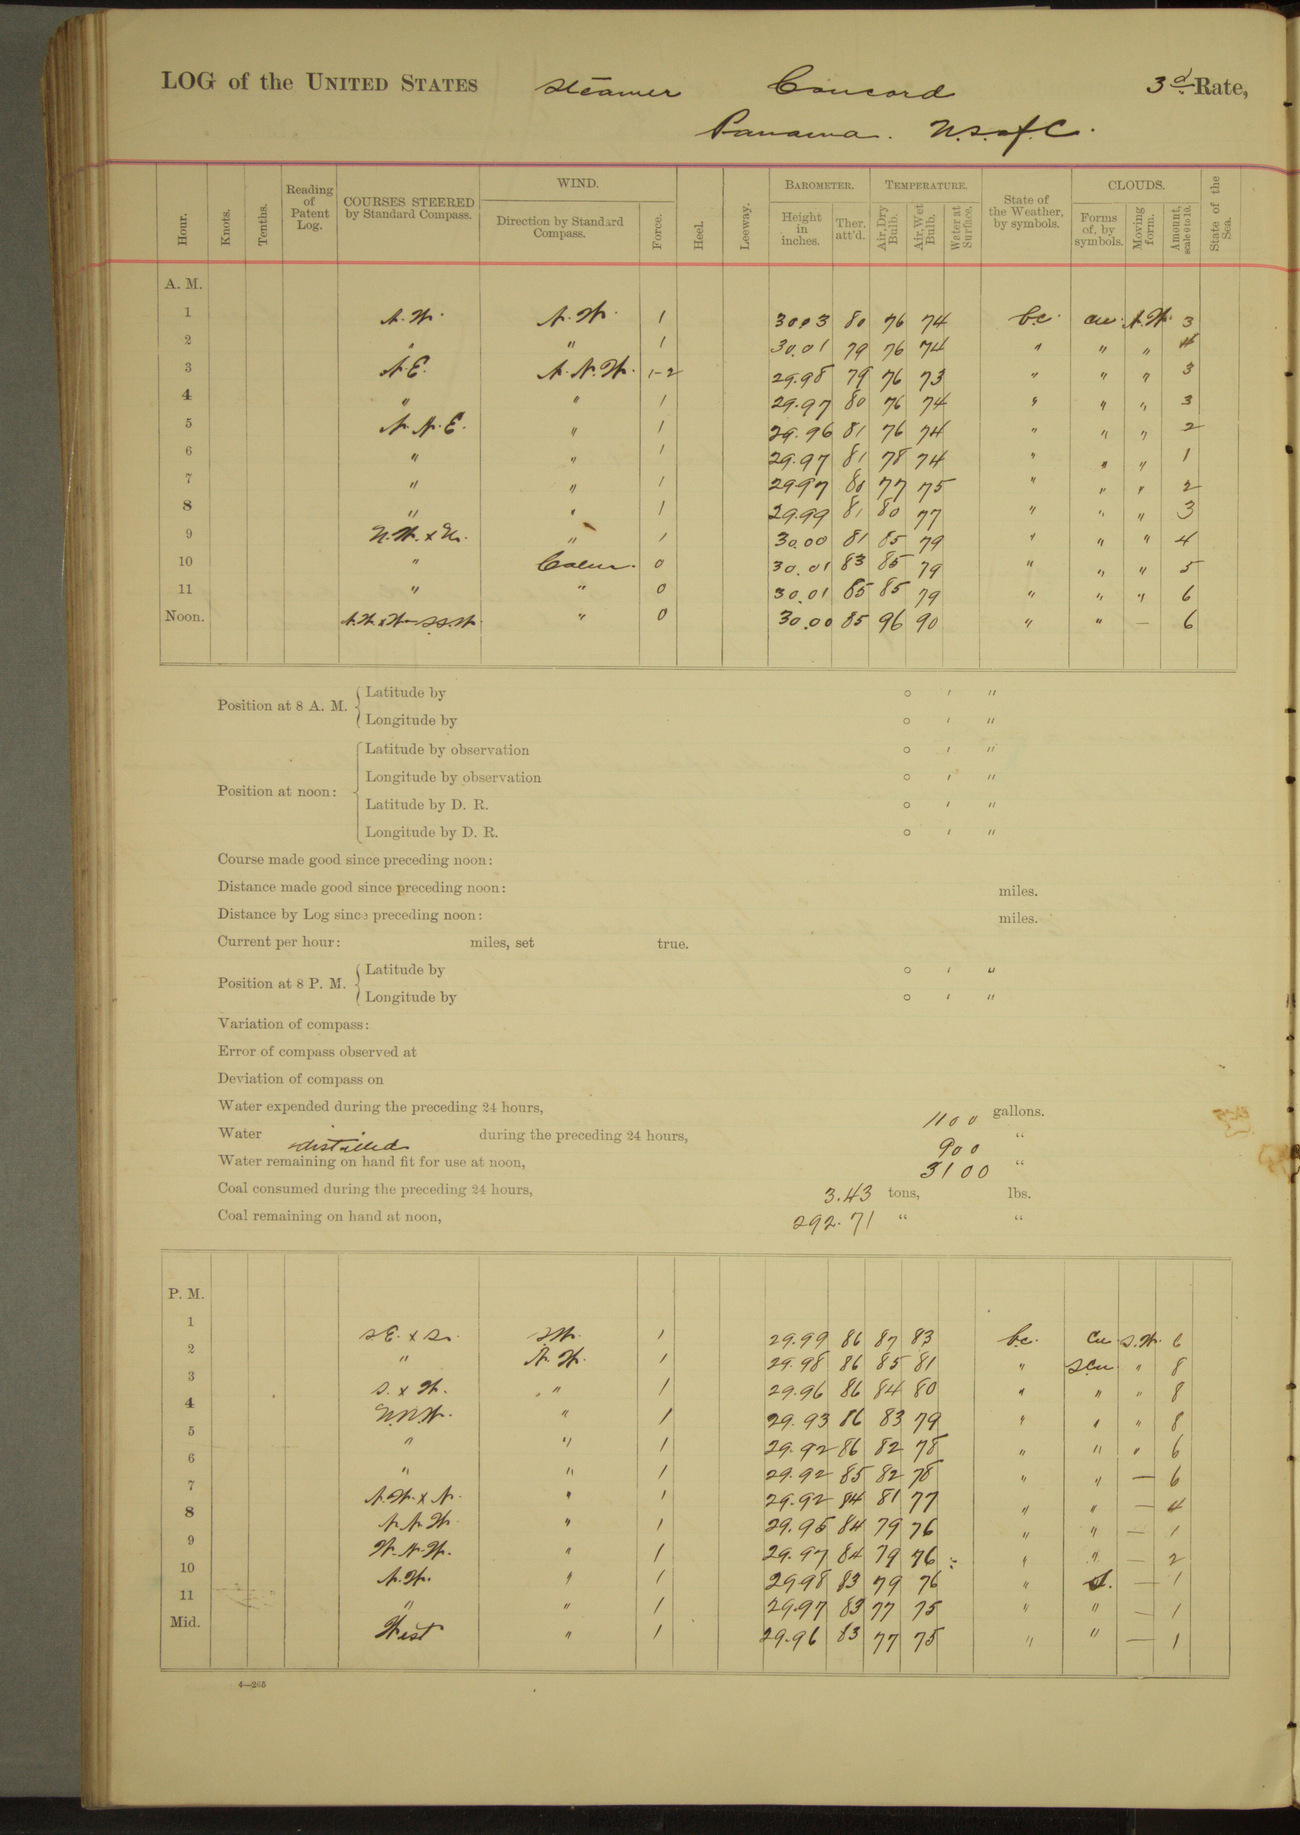 LOG of the UNITED STATES Steamer Concord 3d Rate,
Panama. U.S. of C.
Hour. Knots. Tenths. Reading of Patent Log. COURSES STEERED by Standard Compass. WIND. Direction by Standard Compass. Force. Heel. Leeway. BAROMETER. Height in inches. Ther. att'd. TEMPERATURE. Air, Dry Bulb. Air, Wet Bulb. Water at Surface. State of the Weather, by symbols. CLOUDS. Forms of, by symbols. Moving form. Amount, scale 0 to 10. State of the Sea.
A. M.
1 N.W. N.W. 1 30.03 80 76 74 b.c. cu. N.W. 3
2 " " 1 30.01 79 76 74 " " " 4
3 N.E. N.N.W. 1-2 29.98 79 76 73 " " " 3
4 " " 1 29.97 80 76 74 " " " 3
5 N.N.E. " 1 29.96 81 76 74 " " " 2
6 " " 1 29.97 81 78 74 " " " 1
7 " " 1 29.97 80 77 75 " " " 2
8 " " 1 29.99 81 80 77 " " " 3
9 N.W. x N. " 1 30.00 81 85 79 " " " 4
10 " Calm. 0 30.01 83 85 79 " " " 5
11 " " 0 30.01 85 85 79 " " " 6
Noon. N.W.xW-S.S.W. " 0 30.00 85 96 90 " " — 6
Position at 8 A. M. Latitude by ° ′ ″
Longitude by ° ′ ″
Position at noon: Latitude by observation ° ′ ″
Longitude by observation ° ′ ″
Latitude by D. R. ° ′ ″
Longitude by D. R. ° ′ ″
Course made good since preceding noon:
Distance made good since preceding noon: miles.
Distance by Log since preceding noon: miles.
Current per hour: miles, set true.
Position at 8 P. M. Latitude by ° ′ ″
Longitude by ° ′ ″
Variation of compass:
Error of compass observed at
Deviation of compass on
Water expended during the preceding 24 hours, 1100 gallons.
Water distilled during the preceding 24 hours, 900 "
Water remaining on hand fit for use at noon, 3100 "
Coal consumed during the preceding 24 hours, 3.43 tons, lbs.
Coal remaining on hand at noon, 292.71 " "
P. M.
1 S.E. x S. S.W. 1 29.99 86 87 83 b.c. Cu S.W. 6
2 " N.W. 1 29.98 86 85 81 " S.Cu. " 8
3 S. x W. " 1 29.96 86 84 80 " " " 8
4 N.N.W. " 1 29.93 86 83 79 " " " 8
5 " " 1 29.92 86 82 78 " " " 6
6 " " 1 29.92 85 82 78 " " — 6
7 N.W. x N. " 1 29.92 84 81 77 " " — 4
8 N.N.W. " 1 29.95 84 79 76 " " — 1
9 W.N.W. " 1 29.97 84 79 76 " " — 2
10 N.W. " 1 29.98 83 79 76 " — 1
11 " " 1 29.97 83 77 75 " " — 1
Mid. West " 1 29.96 83 77 75 " " — 1
4—265